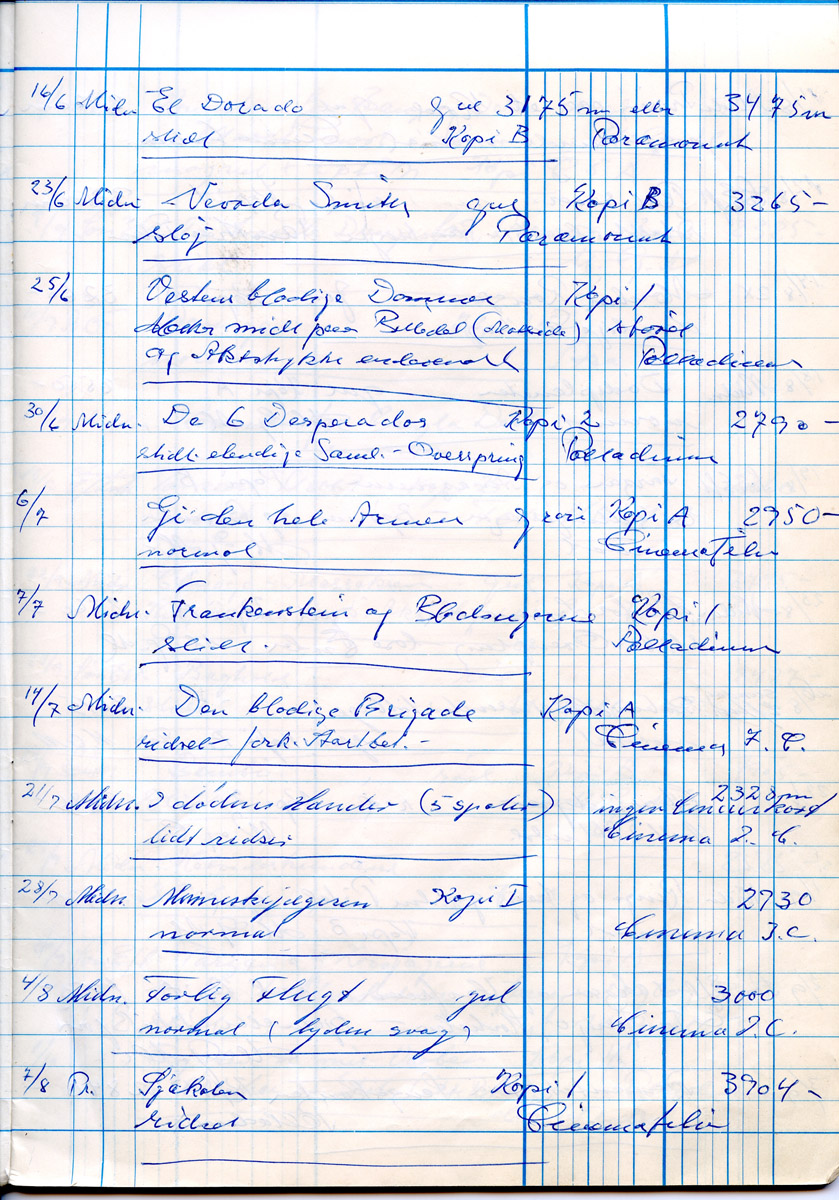 16/6 Midn. El Dorado gul 3175 m eller 3475 m
slidt Kopi B Paramount
23/6 Midn. Nevada Smith gul Kopi B 3265-
sløj Paramount
25/6 Vestens blodige Dommer Kopi 1
midt paa Billedet
og Aktstykke Palladium
30/6 Midn. De 6 Desperados Kopi 2 2790-
slidt elendige Saml.- Overspring Palladium
6/7 Gi den hele Armen grøn Kopi A 2950-
normal Cinemafilm
7/7 Midn. Frankenstein og Blodsugerne Kopi 1
slidt. Palladium
14/7 Midn. Den blodige Brigade Kopi A
ridset Cinema I. C.
21/7 Midn. I dødens Hænder (5 spoler) 2328 m
ingen Censurkort
lidt ridser Cinema I. C.
28/7 Midn. Menneskejægeren Kopi I 2730
normal Cinema I. C.
4/8 Midn. Farlig Flugt gul 3000
normal (lyden svag) Cinema I. C.
7/8 Pr. Sjakalen Kopi 1 3904-
ridset Cinemafilm